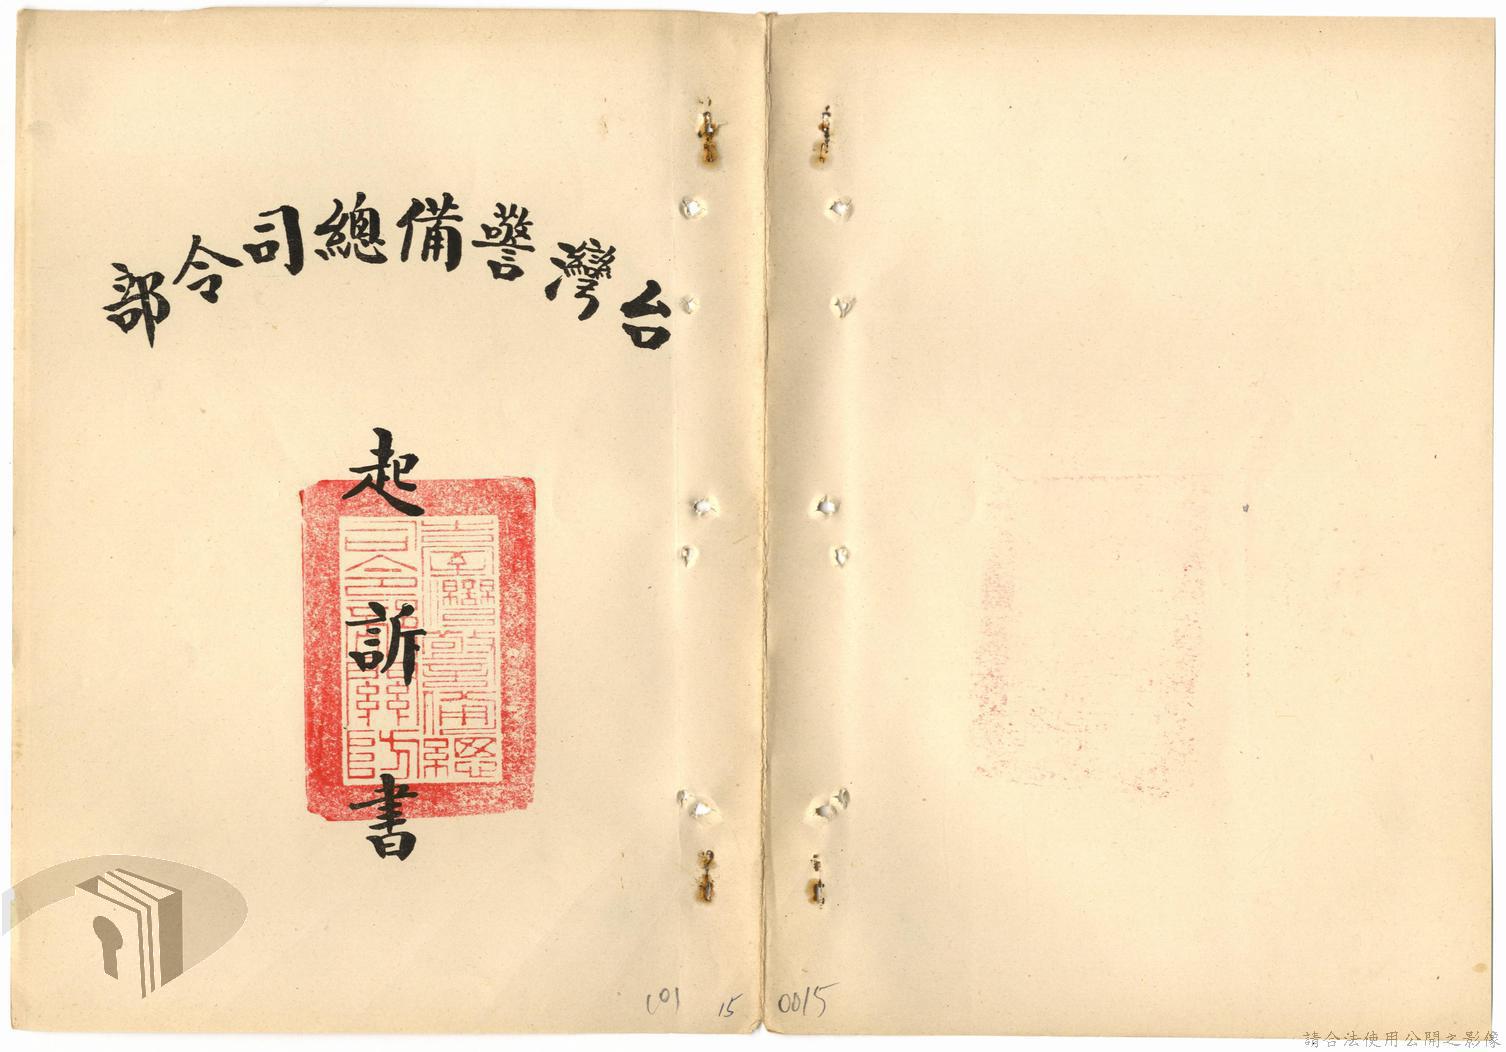 台灣警備總司令部
起訴書
臺灣警備總
司令部關防
(0)
15
0015
請合法使用公開之影像